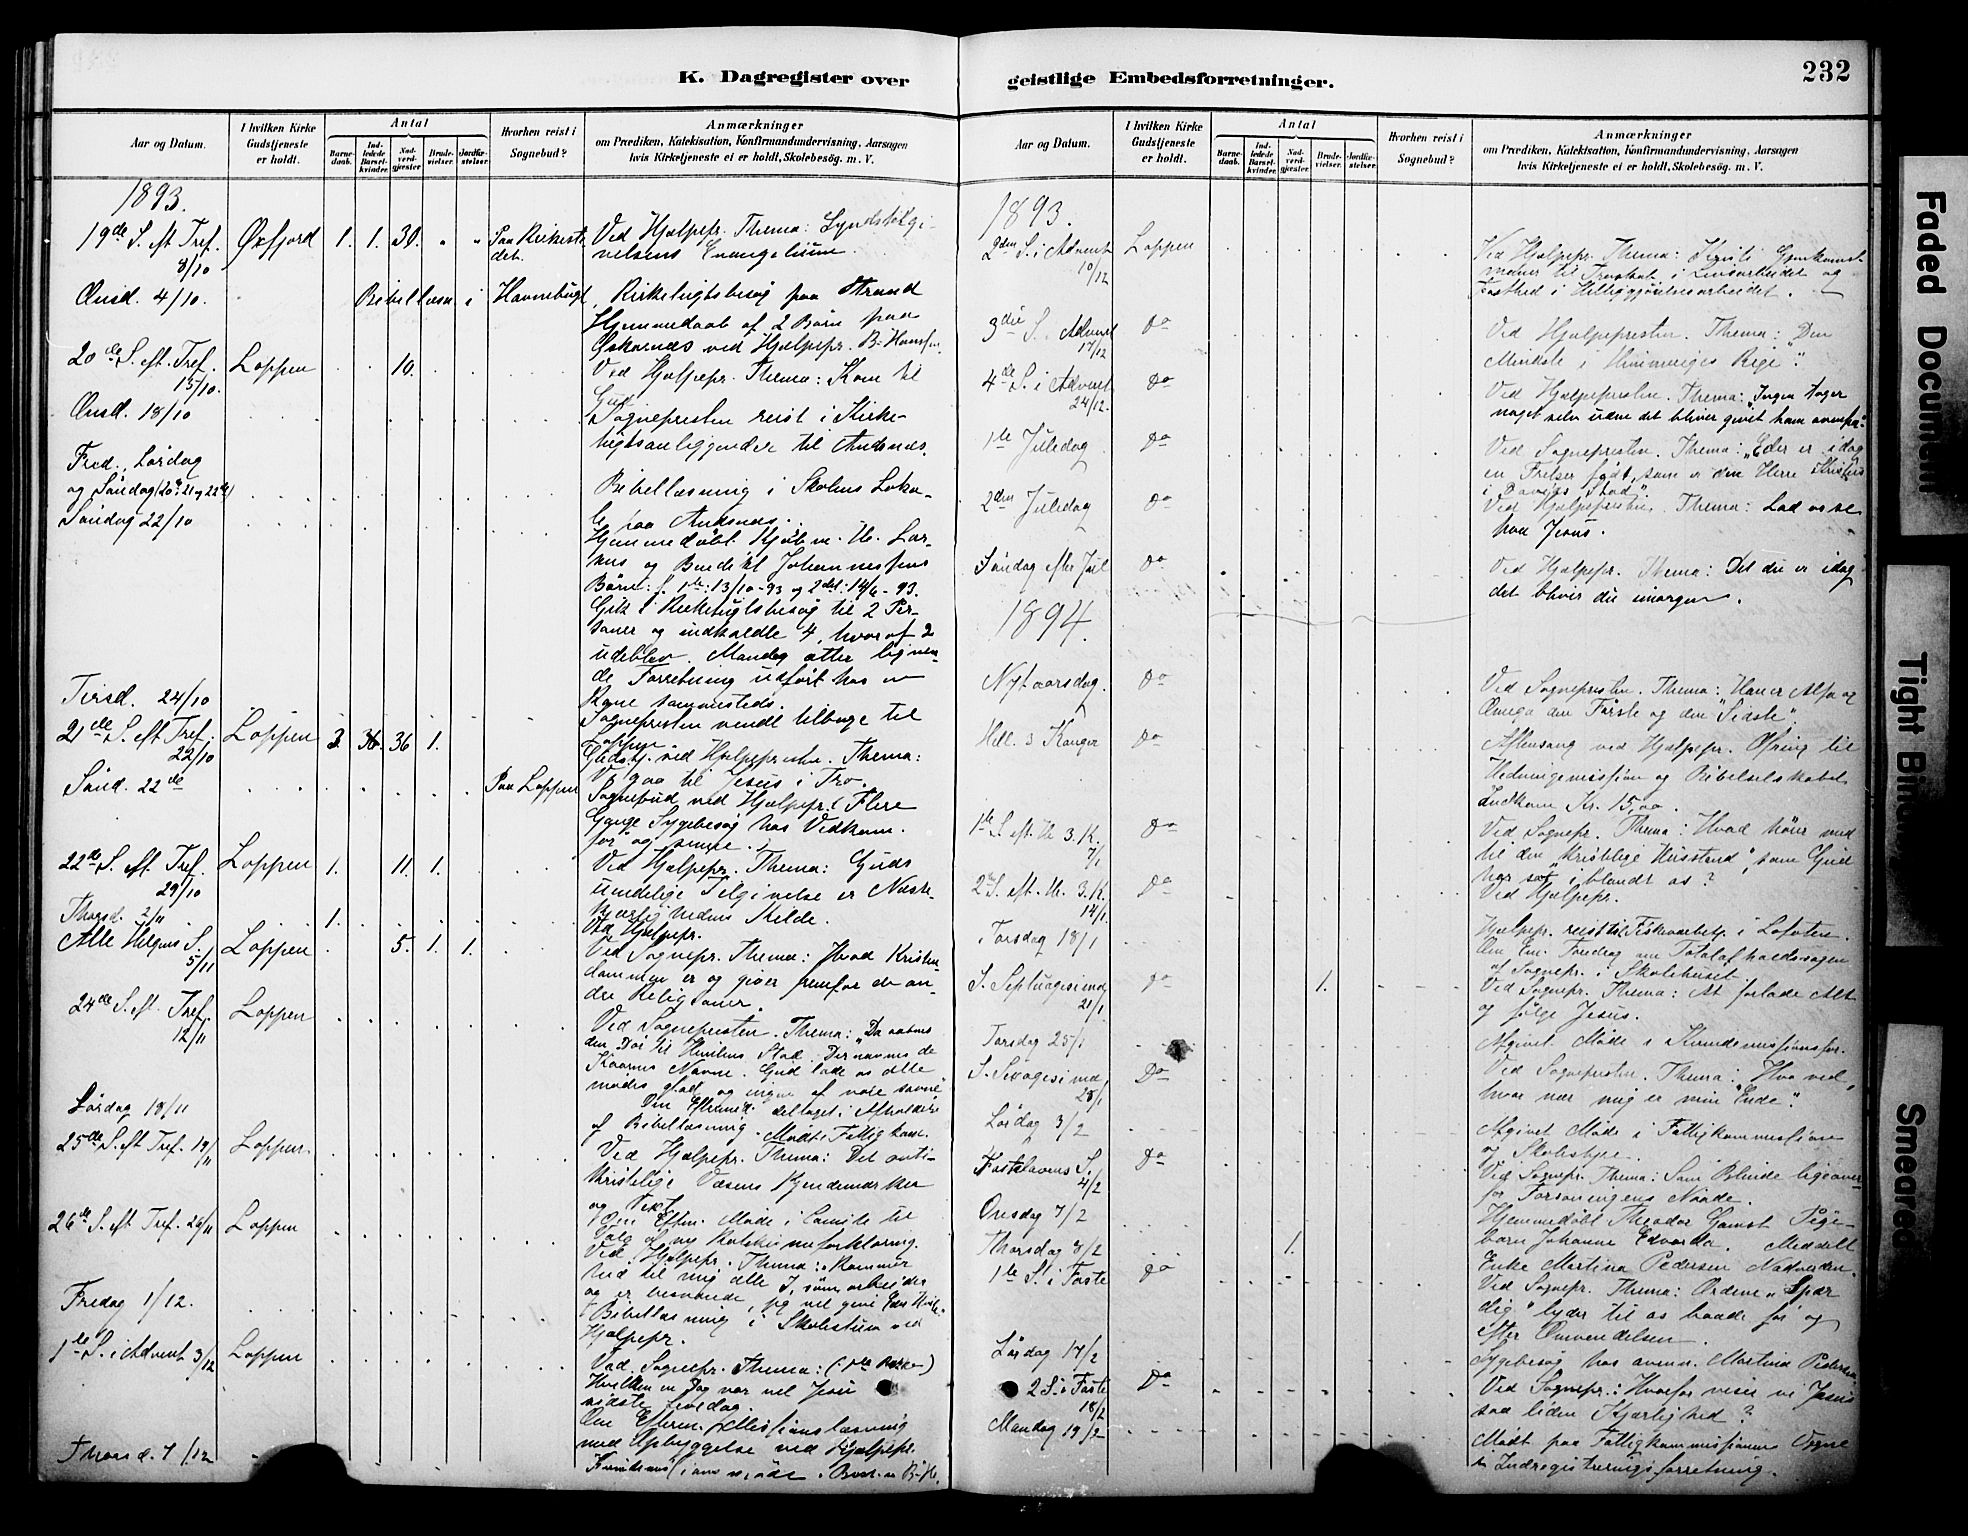 K. Dagregister over
Aar og Datum.
I hvilken Kirke Gudstjeneste er holdt.
Antal
Barne-daab.
Ind-ledede Barsel-kvinder.
Nad-verd-gjester.
Brude-vielser.
Jordfæ-stelser.
Hvorhen reist i Sognebud?
Anmærkninger
om Prædiken, Katekisation, Konfirmandundervisning, Aarsagen
hvis Kirketjeneste ei er holdt, Skolebesög. m. V.
1893.
19de S. eft Tref. 8/10 Øxfjord 1. 1. 30. " " Paa Kirkeste
det.
Ved Hjælpepr. Thema: Syndsforlgi-
velsens Evangelium.
Onsd. 4/10. Bibellæsn i Havnebugt
Kirketugtsbesøg paa Strand
Hjemmedaab af 2 Børn paa
ved Hjælpepr.
20de S. eft. Tref. 15/10. Loppen 10.
Ved Hjælpepr. Thema: Kom til
Gud
Onsd. 18/10
Sognepresten reist i Kirke-
tugtsanliggender til Andsnes.
Fred., Lørdag
og Søndag (20de 21 og 22de)
Bibellæsning i Skolens Loka-
le paa Andsnes.
Søndag 22/10
Hjemmedøbt
og Benedikt Johannessens
Børn: f. 1te: 13/10-93 og 2det: 14/6-93.
Gik i Kirketugtsbesøg til 2 Per-
soner og indkaldte 4, hvoraf 2
udeblev. Mandag atter lignen-
de Forretning udført hos en
Kone sammesteds.
Tirsd. 24/10
Sognepresten vendt tilbage til
Loppen.
21de S. eft Tref. 22/10 Loppen 3. 36 1.
Gudstj. ved Hjælpepresten. Thema:
Vi gaa til Jesus i Tro.
Sønd. 22de Paa Loppen
Sognebud ved Hjælpepr. Flere
Gange Sygebesøg hos Vedkom.
før og senere.
22de S. eft. Tref. 29/10 Loppen 1. 11. 1.
Ved Hjælpepr. Thema: Guds
uendelige Tilgivelse er Næste-
kjærlighedens Kilde.
Thorsd. 2/11 1.
Ved Hjælpepr.
Alle Helgens S. 5/11 Loppen 5. 1. 1.
Ved Sognepr. Thema: Hvad Kristen-
dommen er og giver fremfor de an-
dre Religioner.
24de S. eft. Tref. 12/11 Loppen
Ved Sognepresten. Thema: "Da aabnes
den Dør til Himlens Stad. Der navnes de
Kaarnes Navne. Gud lade os alle
mødes glad og ingen af vore savne"
Lørdag 18/11
Om Eftermid. deltaget i Afholds
Bibellæsning. Mødt i Fattigkom.
25de S. eft Tref. 19/11 Loppen.
Ved Hjælpepr. Thema: Det anti-
kristelige Væsens Kjendemærker
og Vext
26de S. eft Tref. 26/11 Loppen
Om Eftm. Møde i Comite til
Valg af ny Katekismeforklaring.
Ved Hjælpepr. Thema: "Kommer
hid til mig alle I, som arbeider
og er besværede, jeg vil give Eder Hvile"
Fredag 1/12.
Bibellæsning i Skolestuen ved
Hjælpepr.
1te S. i Advent 3/12 Loppen
Ved Sognepr. Thema: (1ste Række)
Hvilken en Dag var vel Jesu
sidste Levedag.
Om Efterm. Missionslæsning
med Opbyggelse ved Hjælpepr.
Thorsd. 7/12
geistlige Embedsforretninger.
232
Aar og Datum.
I hvilken Kirke Gudstjeneste er holdt.
Antal
Barne-daab.
Ind-ledede Barsel-kvinder.
Nad-verd-gjester.
Brude-vielser.
Jordfæ-stelser.
Hvorhen reist i Sognebud?
Anmærkninger
om Prædiken, Katekisation, Konfirmandundervisning, Aarsagen
hvis Kirketjeneste ei er holdt, Skolebesög. m. V.
1893.
2den S. i Advent 10/12 Loppen
Ved Hjælpepr. Thema: Kristi Gjenkomst
maner til Troskab i Livsarbeidet og
Fasthed i Helliggjørelsesarbeidet.
3die S. i Advent 17/12 Do
Ved Hjælpepresten. Thema: "Den
Mindste i Himmeriges Rige".
4de S. i Advent 24/12. Do
Ved Hjælpepresten. Thema: "Ingen tager
noget selv uden det bliver givet ham ovenfra".
1te Juledag Do
Ved Sognepresten. Thema: "Eder er idag
en Frelser født, som er den Herre Kristus
i Davids Stad".
2den Juledag Do
Ved Hjælpepresten. Thema: Lad os se
paa Jesus.
Søndag efter Jul Do
Ved Hjælpepr. Thema: Det du er idag
det bliver du imorgen.
1894.
Nytaarsdag. Do
Ved Sognepresten. Thema: "Han er Alfa og
Omega den Første og den Sidste".
Hell. 3 Konger Do
Aftensang ved Hjælpepr. Ofring til
Hedningemissionen og Bibelselskabet
Indkom Kr. 15,00.
1te S. eft. H. 3. K. 7/1 Do
Ved Sognepr. Thema: Hvad hører med
til den "kristelige Husstand", som Gud
har sat iblandt os?
2den S. eft. H. 3. K. 14/1. Do
Ved Hjælpepr.
Torsdag 18/1
Hjælpepr. reist til Fiskeværbetj. i Lofoten.
Om Em. Foredrag om Totalafholdssagen
af Sognepr. i Skolehuset.
S. Septuagesima 21/1 Do 1.
Ved Sognepr. Thema: At forlade Alt
og følge Jesus.
Torsdag 25/1
Afgivet Møde i Kvindemissionsfor.
S. Sexagesima 28/1 Do
Ved Sognepresten. Thema: "Hvo ved,
hvor nær mig er min Ende".
Lørdag 3/2
Afgivet Møde i Fattigkommissionen
og Skolestyre.
Fastelavens S. 4/2 Do
Ved Sognepr. Thema: Som Blinde ligeover-
for Forsoningens Naade.
Onsdag 7/2
Hjemmedøbt Theodor Pige-
barn Johanne Edvarda. Meddelt
Thorsdag 8/2 1.
Enke Martina Pedersen Nadverden.
1te S. i Faste Do
Ved Sognepr. Thema: Ordene "Spær
dig" lyder til os baade før og
efter Omvendelsen.
Lørdag 17/2
Sygebesøg hos ovenn. Martina Pedersen
2 S. i Faste 18/2 Do
Ved Sognepr.: Hvorfor viser vi Jesus
saa liden Kjærlighed?
Mandag 19/2
Mødt paa Fattigkommissionens Vegne
i Indregistreringsforretning.
Faded Document
Tight Bin
Smeared